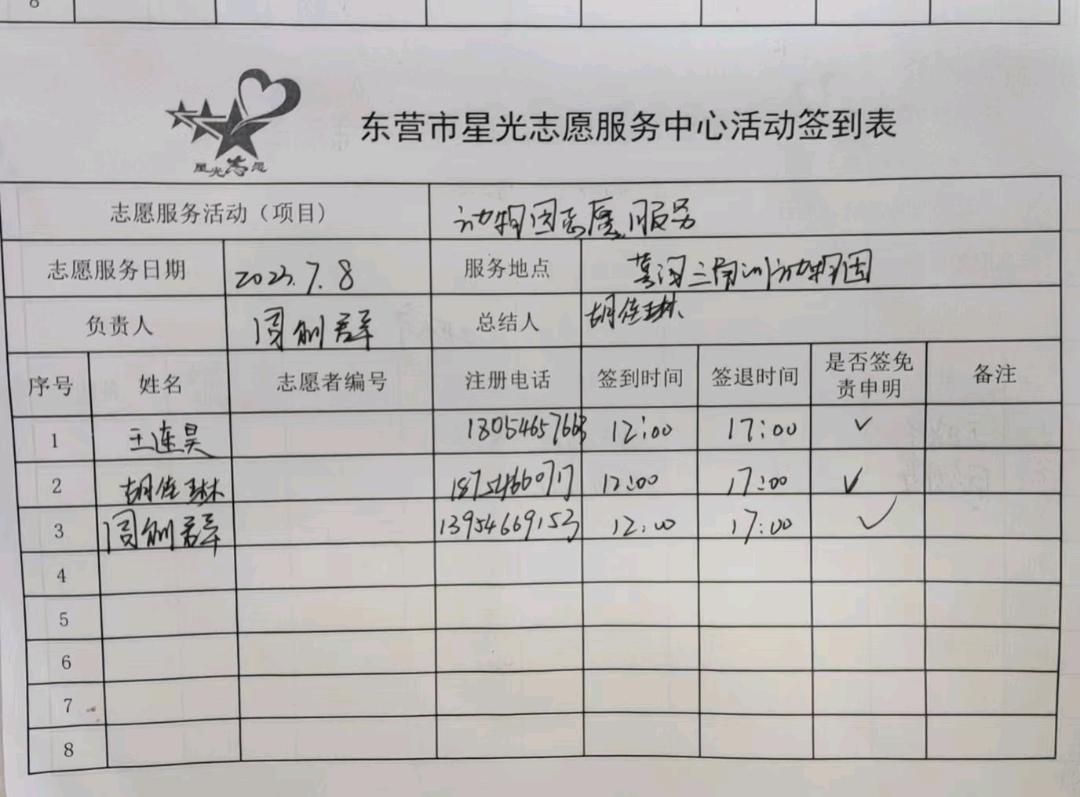 8
星光志愿
东营市星光志愿服务中心活动签到表
志愿服务活动（项目） 动物园志愿服务
志愿服务日期 2023.7.8 服务地点 黄河三角洲动物园
负责人 周刚群 总结人 胡佳琳
序号 姓名 志愿者编号 注册电话 签到时间 签退时间 是否签免责申明 备注
1 王连昊 18054657668 12:00 17:00 ✓
2 胡佳琳 18754660717 12:00 17:00 ✓
3 周刚群 13954669153 12:00 17:00 ✓
4
5
6
7
8